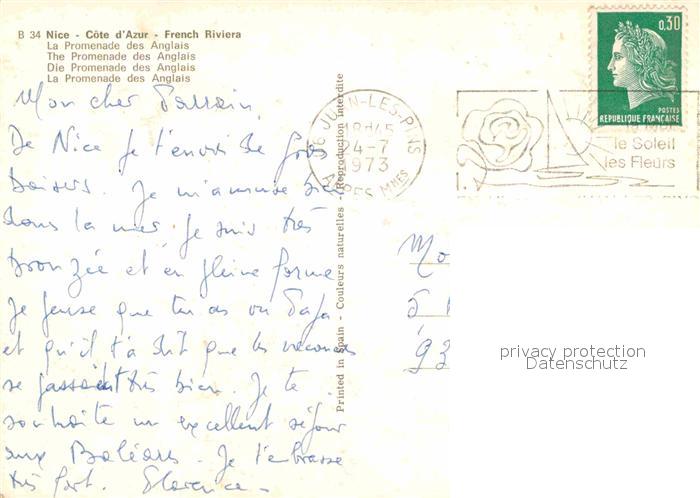 B 34 Nice - Côte d'Azur - French Riviera
La Promenade des Anglais
The Promenade des Anglais
Die Promenade des Anglais
La Promenade des Anglais
Mon cher Parrain,
De Nice je t'envoie de gros
baisers. Je m'amuse bien
dans la mer. Je suis très
bronzée et en pleine forme
Je pense que tu as vu Papa
et qu'il t'a dit que les vacances
se passaient très bien. Je te
souhaite un excellent séjour
aux Baléares. Je t'embrasse
très fort. Florence-
Printed in Spain - Couleurs naturelles - Reproduction interdite
06 JUAN-LES-PINS
18H45
24-7
1973
ALPES MMES
0,30
POSTES
REPUBLIQUE FRANÇAISE
le Soleil
les Fleurs
Mo
5
93
privacy protection
Datenschutz